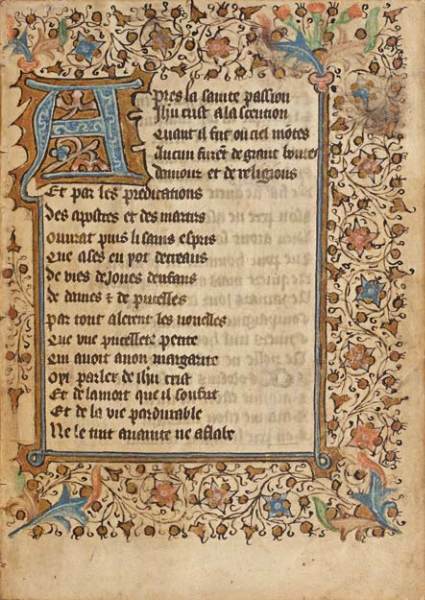 Apres la sainte passion
Ihu crist a la scention
Quant il fut ou ciel mōtes
Aucun furēt de grant bontes
damour et de religions
Et par les predications
des apostres et des martirs
ouurat puis li sains espris
Que ases en yot de
de vies de Joues denfans
de dames & de pucelles
par tout alerent les nouelles
Que vne pucellete petite
Qui auoit a nom margarite
Oyi parler de ihu crist
Et de la mort que il soufrit
Et de la vie pardurable
Ne le tint a vanite ne a flabe